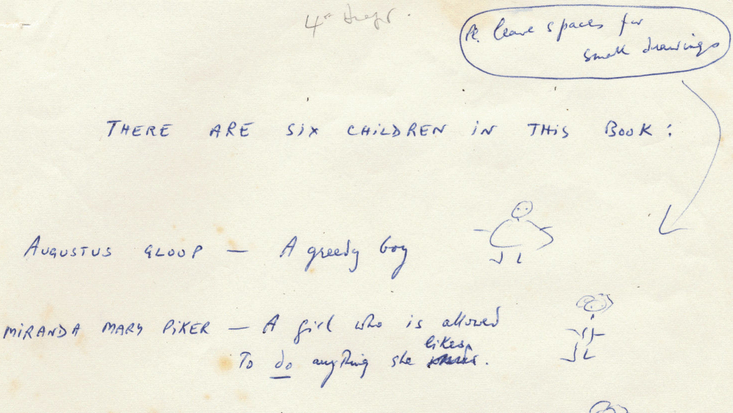 4th draft.
Pl. leave spaces for
small drawings
THERE ARE SIX CHILDREN IN THIS BOOK:
AUGUSTUS GLOOP — A greedy boy
MIRANDA MARY PIKER — A girl who is allowed
To do anything she likes.